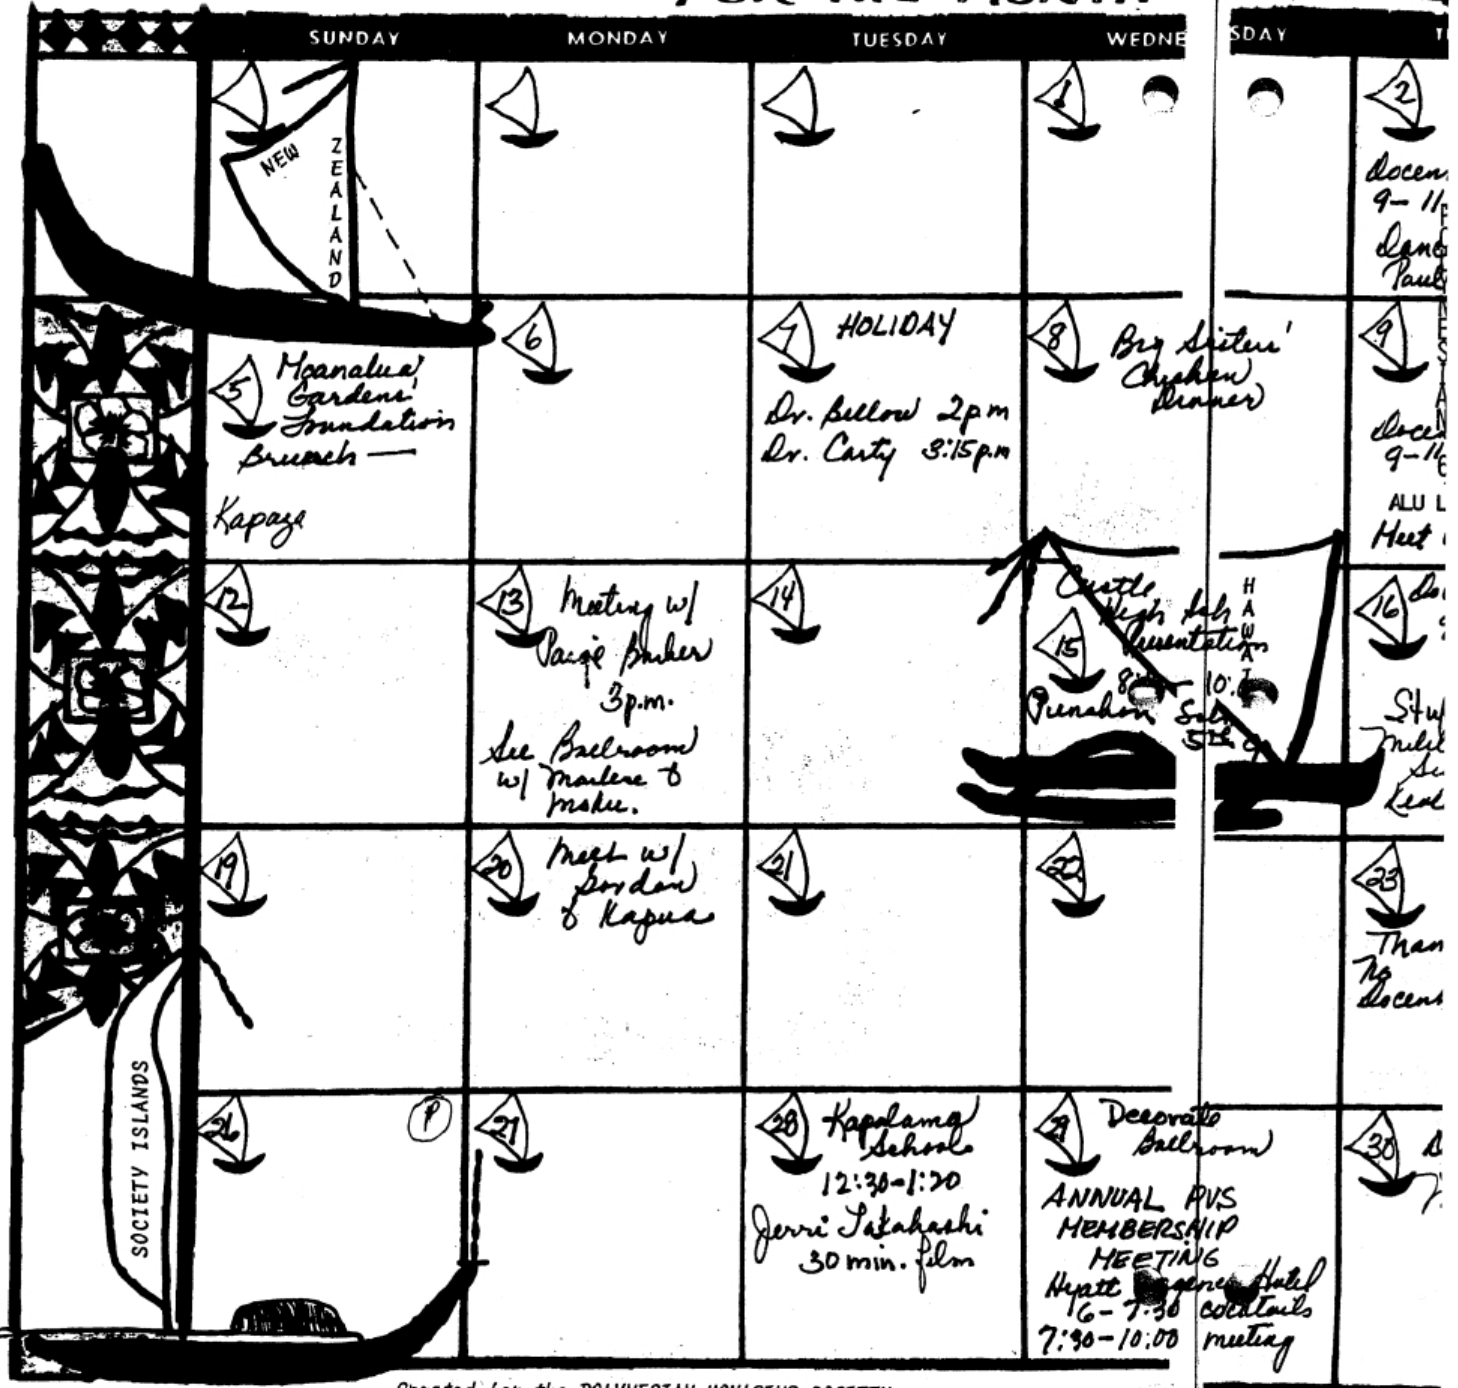 FOR THE MONTH
SUNDAY MONDAY TUESDAY WEDNESDAY
NEW ZEALAND
1
2
Docen
9-11
Paul
5 Moanalua
Gardens'
Foundation
Brunch —
Kapaza
6
7 HOLIDAY
Dr. Bellow 2pm
Dr. Carty 3:15p.m
8 Big Sisters'
Chicken
Dinner
9
Doce
9-11
ALU L
Meet
12
13 Meeting w/
Paige Barber
3p.m.
See Ballroom
w/ Marlene &
Moku.
14
Castle
High Sch
15 Presentation
8: - 10:
Punahou Sch
5th
HAWAI
16
19
20 Meet w/
Gordon
& Kapua
21
22
23
Than
No
Docent
SOCIETY ISLANDS
26 P
27
28 Kapalama
School
12:30-1:20
Jerri Takahashi
30 min. film
29 Decorate
Ballroom
ANNUAL PVS
MEMBERSHIP
MEETING
Hyatt Hotel
6-7:30 cocktails
7:30-10:00 meeting
30
Created for the POLYNESIAN VOYAGING SOCIETY